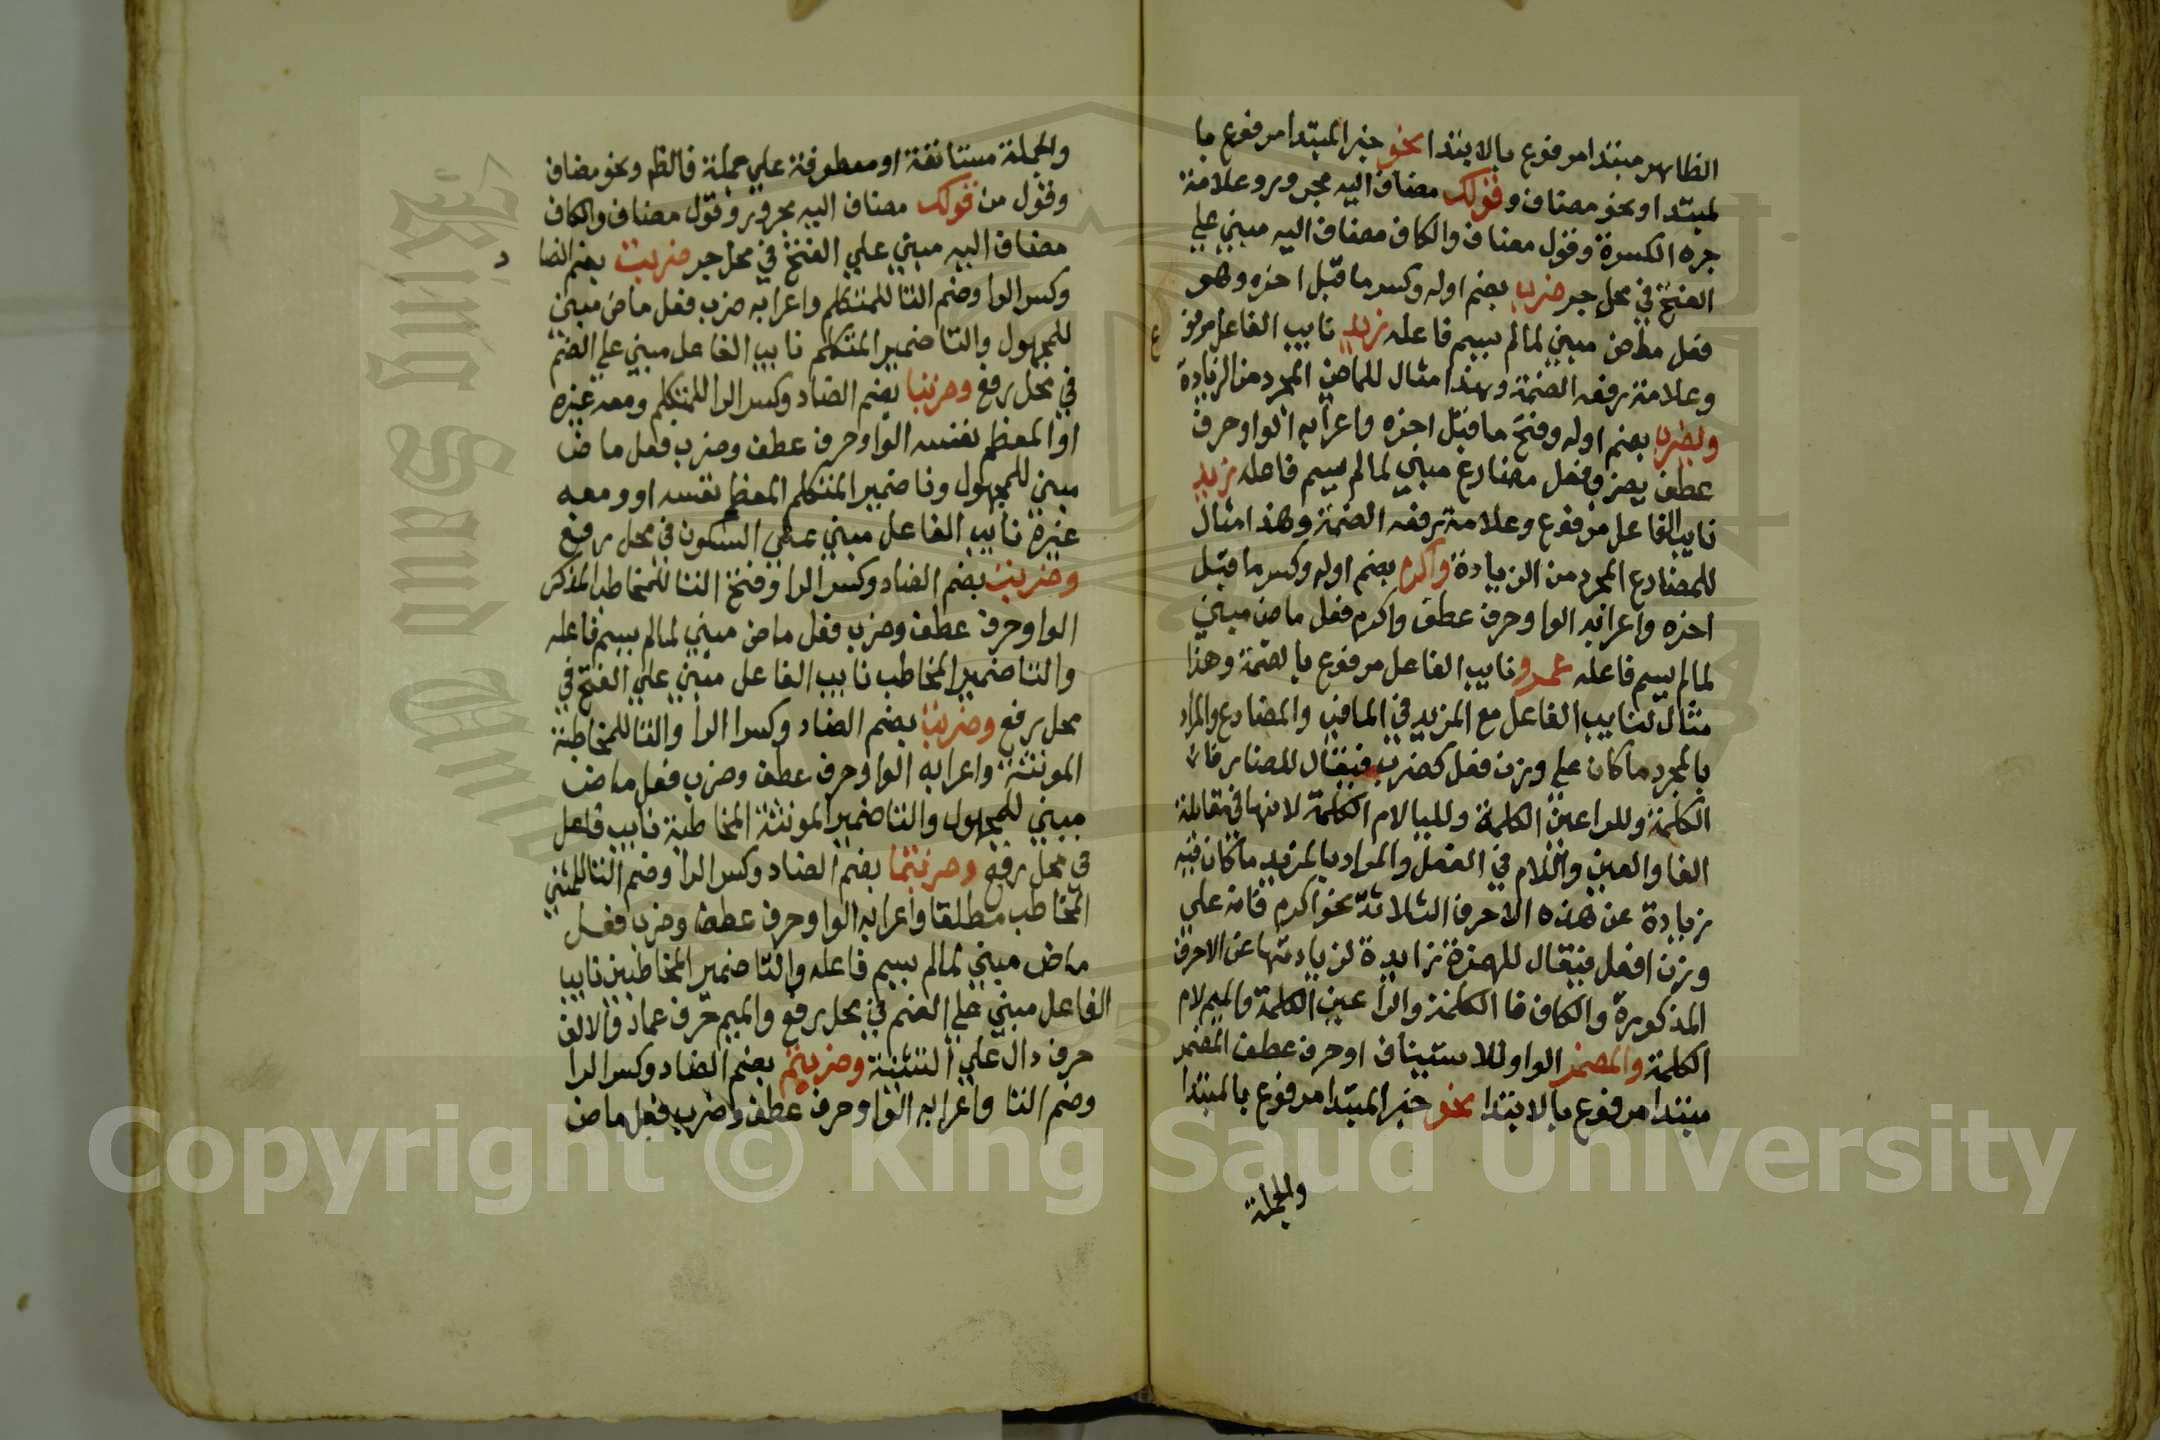 الظاهر مبتدا مرفوع بالابتدا نحو خبر المبتدا مرفوع با
لمبتدا ونحو مضاف وقولك مضاف اليه مجرور وعلامة
جره الكسرة وقول مضاف والكاف مضاف اليه مبني علي
الفتح في محل جر ضرب بضم اوله وكسر ما قبل اخره وهو
فعل ماض مبني لمالم يسم فاعله زيد نايب الفاعل مرفو
ع
وعلامة رفعه الضمة وهذا مثال للماضي المجرد من الزيادة
ويضرب بضم اوله وفتح ما قبل اخره واعرابه الواو حرف
عطف يضرب فعل مضارع مبني لمالم يسم فاعله زيد
نايب الفاعل مرفوع وعلامة رفعه الضمة وهذا مثال
للمضارع المجرد من الزيادة واكرم بضم اوله وكسر ما قبل
اخره واعرابه الواو حرف عطف واكرم فعل ماض مبني
لمالم يسم فاعله عمرو نايب الفاعل مرفوع بالضمة وهذا
مثال لنايب الفاعل مع المزيد في الماضي والمضارع والمراد
بالمجرد ما كان علي وزن فعل كضرب فيقال للضاد فاء
الكلمة وللراعين الكلمة وللبا لام الكلمة لانها في مقابلة
الفا والعين واللام في الفعل والمراد بالمزيد ما كان فيه
زيادة عن هذه الاحرف الثلاثة نحو اكرم فانه علي
وزن افعل فيقال للهمزة زايدة لزيادتها عن الاحرف
المذكورة والكاف فا الكلمة والرا عين الكلمة والميم لام
الكلمة والمضمر الواو للاستيناف او حرف عطف المضمر
مبتدا مرفوع بالابتدا نحو خبر المبتدا مرفوع بالمبتدا
والجملة
والجملة مستانفة او معطوفة علي جملة فالظ ونحو مضاف
وقول من قولك مضاف اليه مجرور وقول مضاف والكاف
مضاف اليه مبني علي الفتح في محل جر ضربت بضم الضا
د
وكسر الرا وضم التا للمتكلم واعرابه ضرب فعل ماض مبني
للمجهول والتا ضمير المتكلم نايب الفاعل مبني علي الضم
في محل رفع وضربنا بضم الضاد وكسر الرا للمتكلم ومعه غيره
او المعظم نفسه الواو حرف عطف وضرب فعل ماض
مبني للمجهول ونا ضمير المتكلم المعظم نفسه او ومعه
غيره نايب الفاعل مبني علي السكون في محل رفع
وضربت بضم الضاد وكسر الرا وفتح التا للمخاطب المذكر
الواو حرف عطف وضرب فعل ماض مبني لمالم يسم فاعله
والتا ضمير المخاطب نايب الفاعل مبني علي الفتح في
محل رفع وضربت بضم الضاد وكسرا الرا والتا للمخاطبة
المونثة واعرابه الواو حرف عطف وضرب فعل ماض
مبني للمجهول والتا ضمير المونثة المخاطبة نايب فاعل
في محل رفع وضربتما بضم الضاد وكسر الرا وضم التا للمثني
المخاطب مطلقا واعرابه الواو حرف عطف وضرب فعل
ماض مبني لمالم يسم فاعله والتا ضمير المخاطبين نايب
الفاعل مبني علي الضم في محل رفع والميم حرف عماد والالف
حرف دال علي التثنية وضربتم بضم الضاد وكسر الرا
وضم التا واعرابه الواو حرف عطف وضرب فعل ماض
King Saud University
1957
Copyright © King Saud University